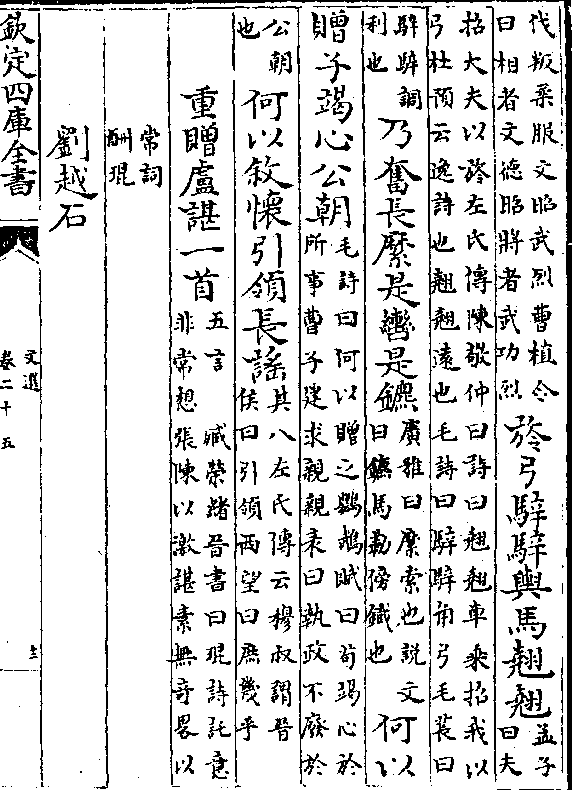 伐叛柔服文昭武烈曹植令
曰相者文德昭將者武功烈
旍弓騂騂輿馬翹翹
孟子
曰夫
招大夫以旍左氏傳陳敬仲曰詩曰翹翹車乘招我以
弓杜預云逸詩也翹翹遠也毛詩曰騂騂角弓毛萇曰
騂騂調
利也
乃奮長縻是轡是鑣
廣雅曰縻索也說文
曰鑣馬勒傍鐵也
何以
贈子竭心公朝
毛詩曰何以贈之鸚鵡賦曰苟竭心於
所事曹子建求親親表曰執政不廢於
公朝
也
何以敘懷引領長謡
其八左氏傳云穆叔謂晉
侯曰引領西望曰庶幾乎
重贈盧諶一首
五言 臧榮緒晉書曰琨詩託意
非常想張陳以激諶素無竒畧以
常詞
酬琨
劉越石
欽定四庫全書
文選
卷二十五